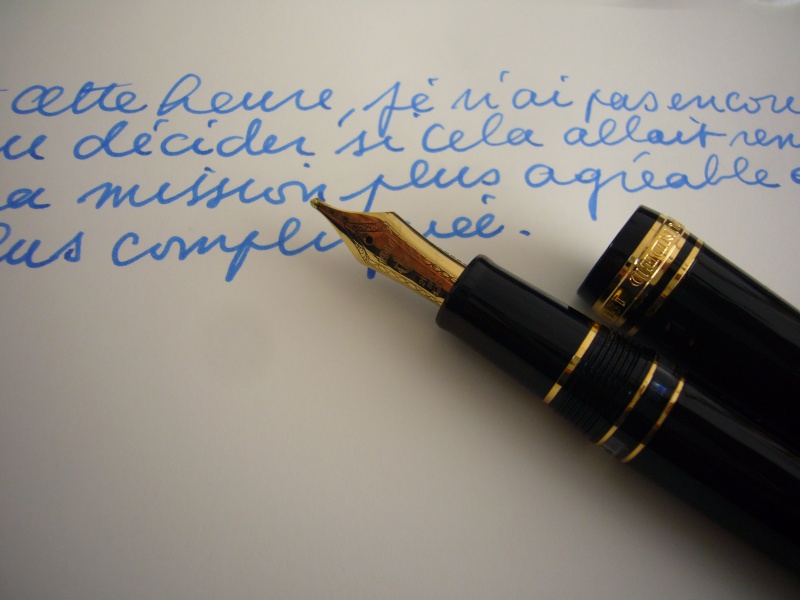 cette heure, je n'ai pas encore
décider si cela allait
mission plus agréable
compli uée.